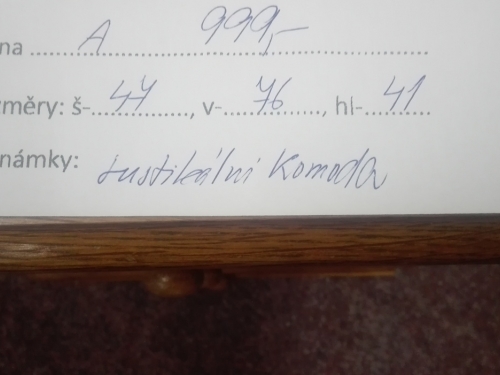 na A 999,-
změry: š- 47, v- 76, hl- 41
námky: rustikální Komoda